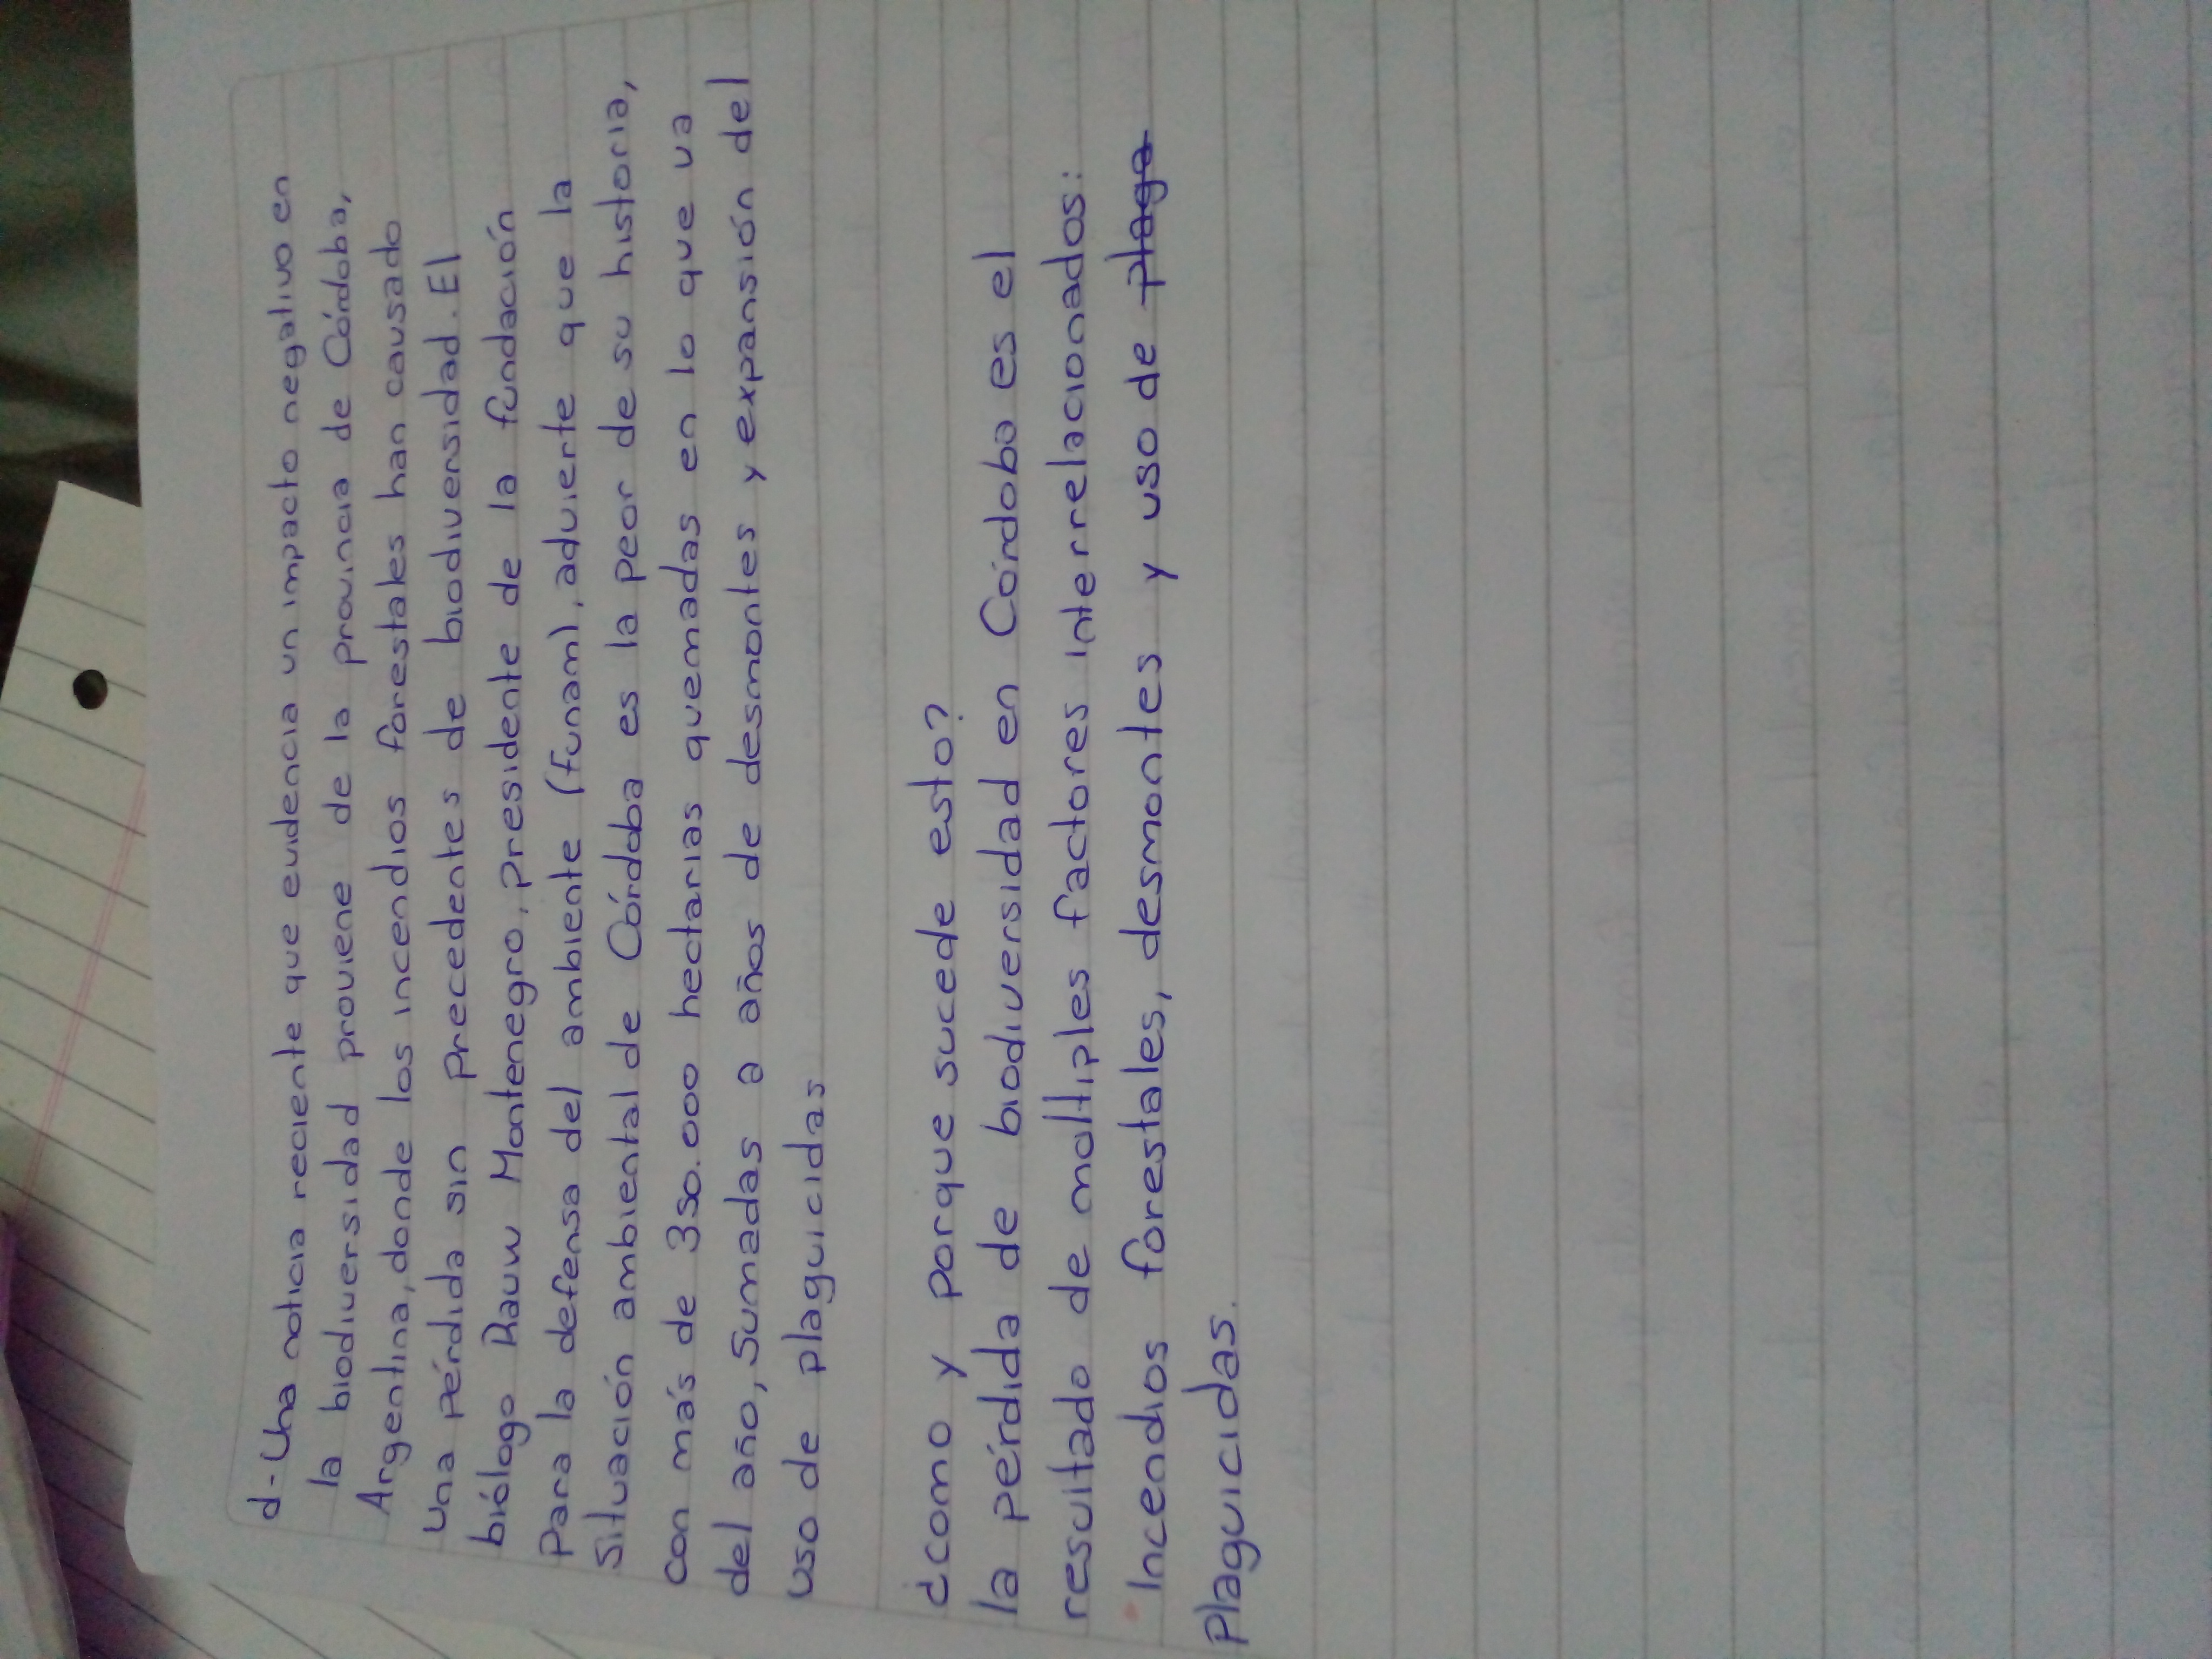 d- Una noticia reciente que evidencia un impacto negativo en
la biodiversidad proviene de la provincia de Córdoba,
Argentina, donde los incendios forestales han causado
una pérdida sin precedentes de biodiversidad. El
biólogo Rauw Montenegro, presidente de la fundación
Para la defensa del ambiente (funam), advierte que la
Situación ambiental de Córdoba es la peor de su historia,
con más de 350.000 hectarias quemadas en lo que va
del año, sumadas a años de desmontes y expansión del
uso de plaguicidas
¿como y porque sucede esto?
la pérdida de biodiversidad en Córdoba es el
resultado de moltiples factores interrelacionados:
Incendios forestales, desmontes y uso de plaga
Plaguicidas.